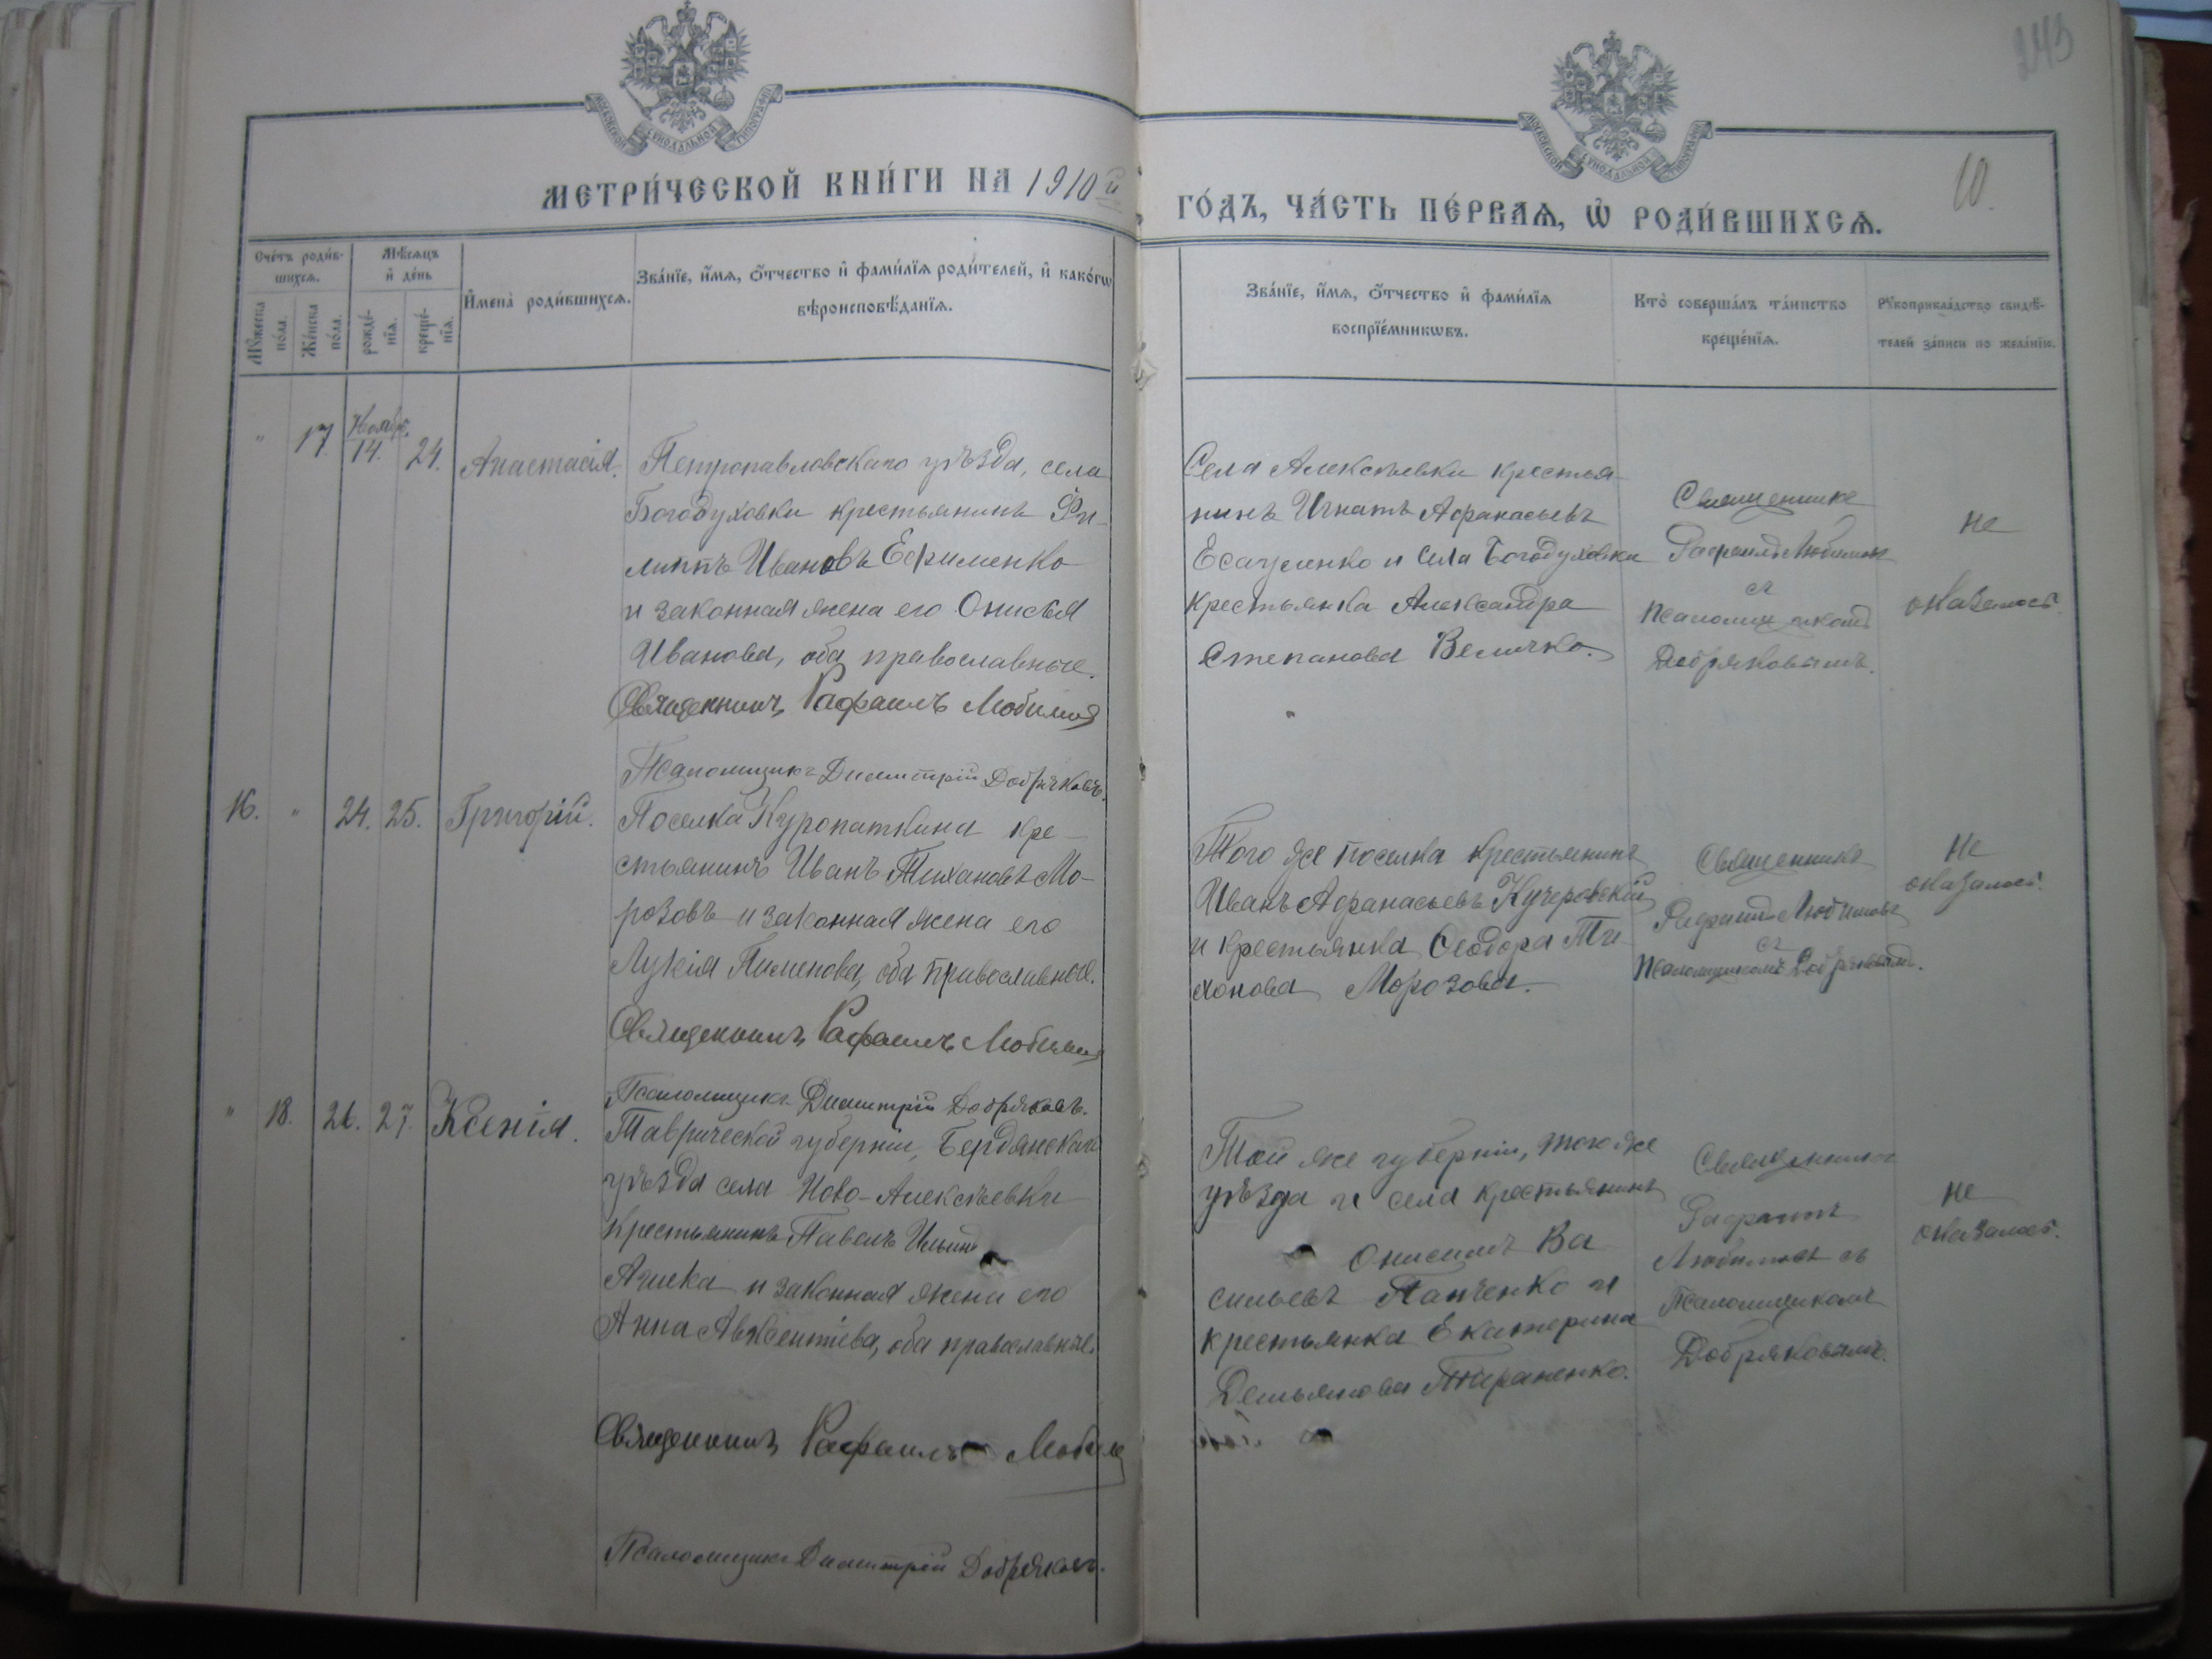 243
МОСКОВСКОЙ СѴНОДАЛЬНОЙ ТИПОГРАФІИ
МОСКОВСКОЙ СѴНОДАЛЬНОЙ ТИПОГРАФІИ
МЕТРИ́ЧЕСКОЙ КНИ́ГИ НА 1910й
ГО́ДЪ, ЧА́СТЬ ПЕ́РВАѦ, Ѽ РОДИ́ВШИХСѦ.
10.
Сче́тъ роди́в-
шихсѧ.
Мꙋ́жеска по́ла.
Же́нска по́ла.
Мѣ́сѧцъ
и҆ де́нь
рожде́-
нїѧ.
креще́-
нїѧ.
И҆мена̀ роди́вшихсѧ.
Зва́нїе, и҆́мѧ, ѻ҆́тчество и҆ фами́лїѧ роди́телей, и҆ како́гѡ
вѣроисповѣ́данїѧ.
Зва́нїе, и҆́мѧ, ѻ҆́тчество и҆ фами́лїѧ
воспрїе́мникѡвъ.
Кто̀ соверша́лъ та́инство
креще́нїѧ.
Рꙋкоприкла́дство свидѣ́-
телей за́писи по жела́нїю.
" 17. Ноябр. 14. 24. Анастасія.
Петропавловскаго уѣзда, села
Богодуховки крестьянинъ Фи-
липпъ Ивановъ Ефименко
и законная жена его Онисія
Иванова, оба православные.
Священникъ Рафаилъ Любимов
Псаломщикъ Димитрій Добряковъ.
Села Алексѣевки крестья-
нинъ Игнатъ Афанасьевъ
Есауленко и села Богодуховки
крестьянка Александра
Степанова Величко.
Священникъ
Рафаилъ Любимовъ
съ
псаломщикомъ
Добряковымъ.
Не
оказалось.
16. " 24. 25. Григорій.
Поселка Куропаткина кре-
стьянинъ Иванъ Тихановъ Мо-
розовъ и законная жена его
Лукія Пименова, оба православные.
Священникъ Рафаилъ Любимов
Псаломщикъ Димитрій Добряковъ.
Того же поселка крестьянинъ
Иванъ Афанасьевъ Кучеровскій
и крестьянка Ѳеодора Ти-
хонова Морозова.
Священникъ
Рафаилъ Любимовъ
съ
псаломщикомъ Добряковымъ.
Не
оказалось.
" 18. 26. 27. Ксенія.
Таврической губерніи, Бердянскаго
уѣзда села Ново-Алексѣевки
крестьянинъ Павелъ Ильинъ
и законная жена его
Анна Авксентіева, оба православные.
Священникъ Рафаилъ Любимов
Псаломщикъ Димитрій Добряковъ.
Той же губерніи, того же
уѣзда и села крестьянинъ
Онисимъ Ва
сильевъ Панченко и
крестьянка Екатерина
Демьянова Тараненко.
Священникъ
Рафаилъ
Любимовъ съ
Псаломщикомъ
Добряковымъ.
Не
оказалось.